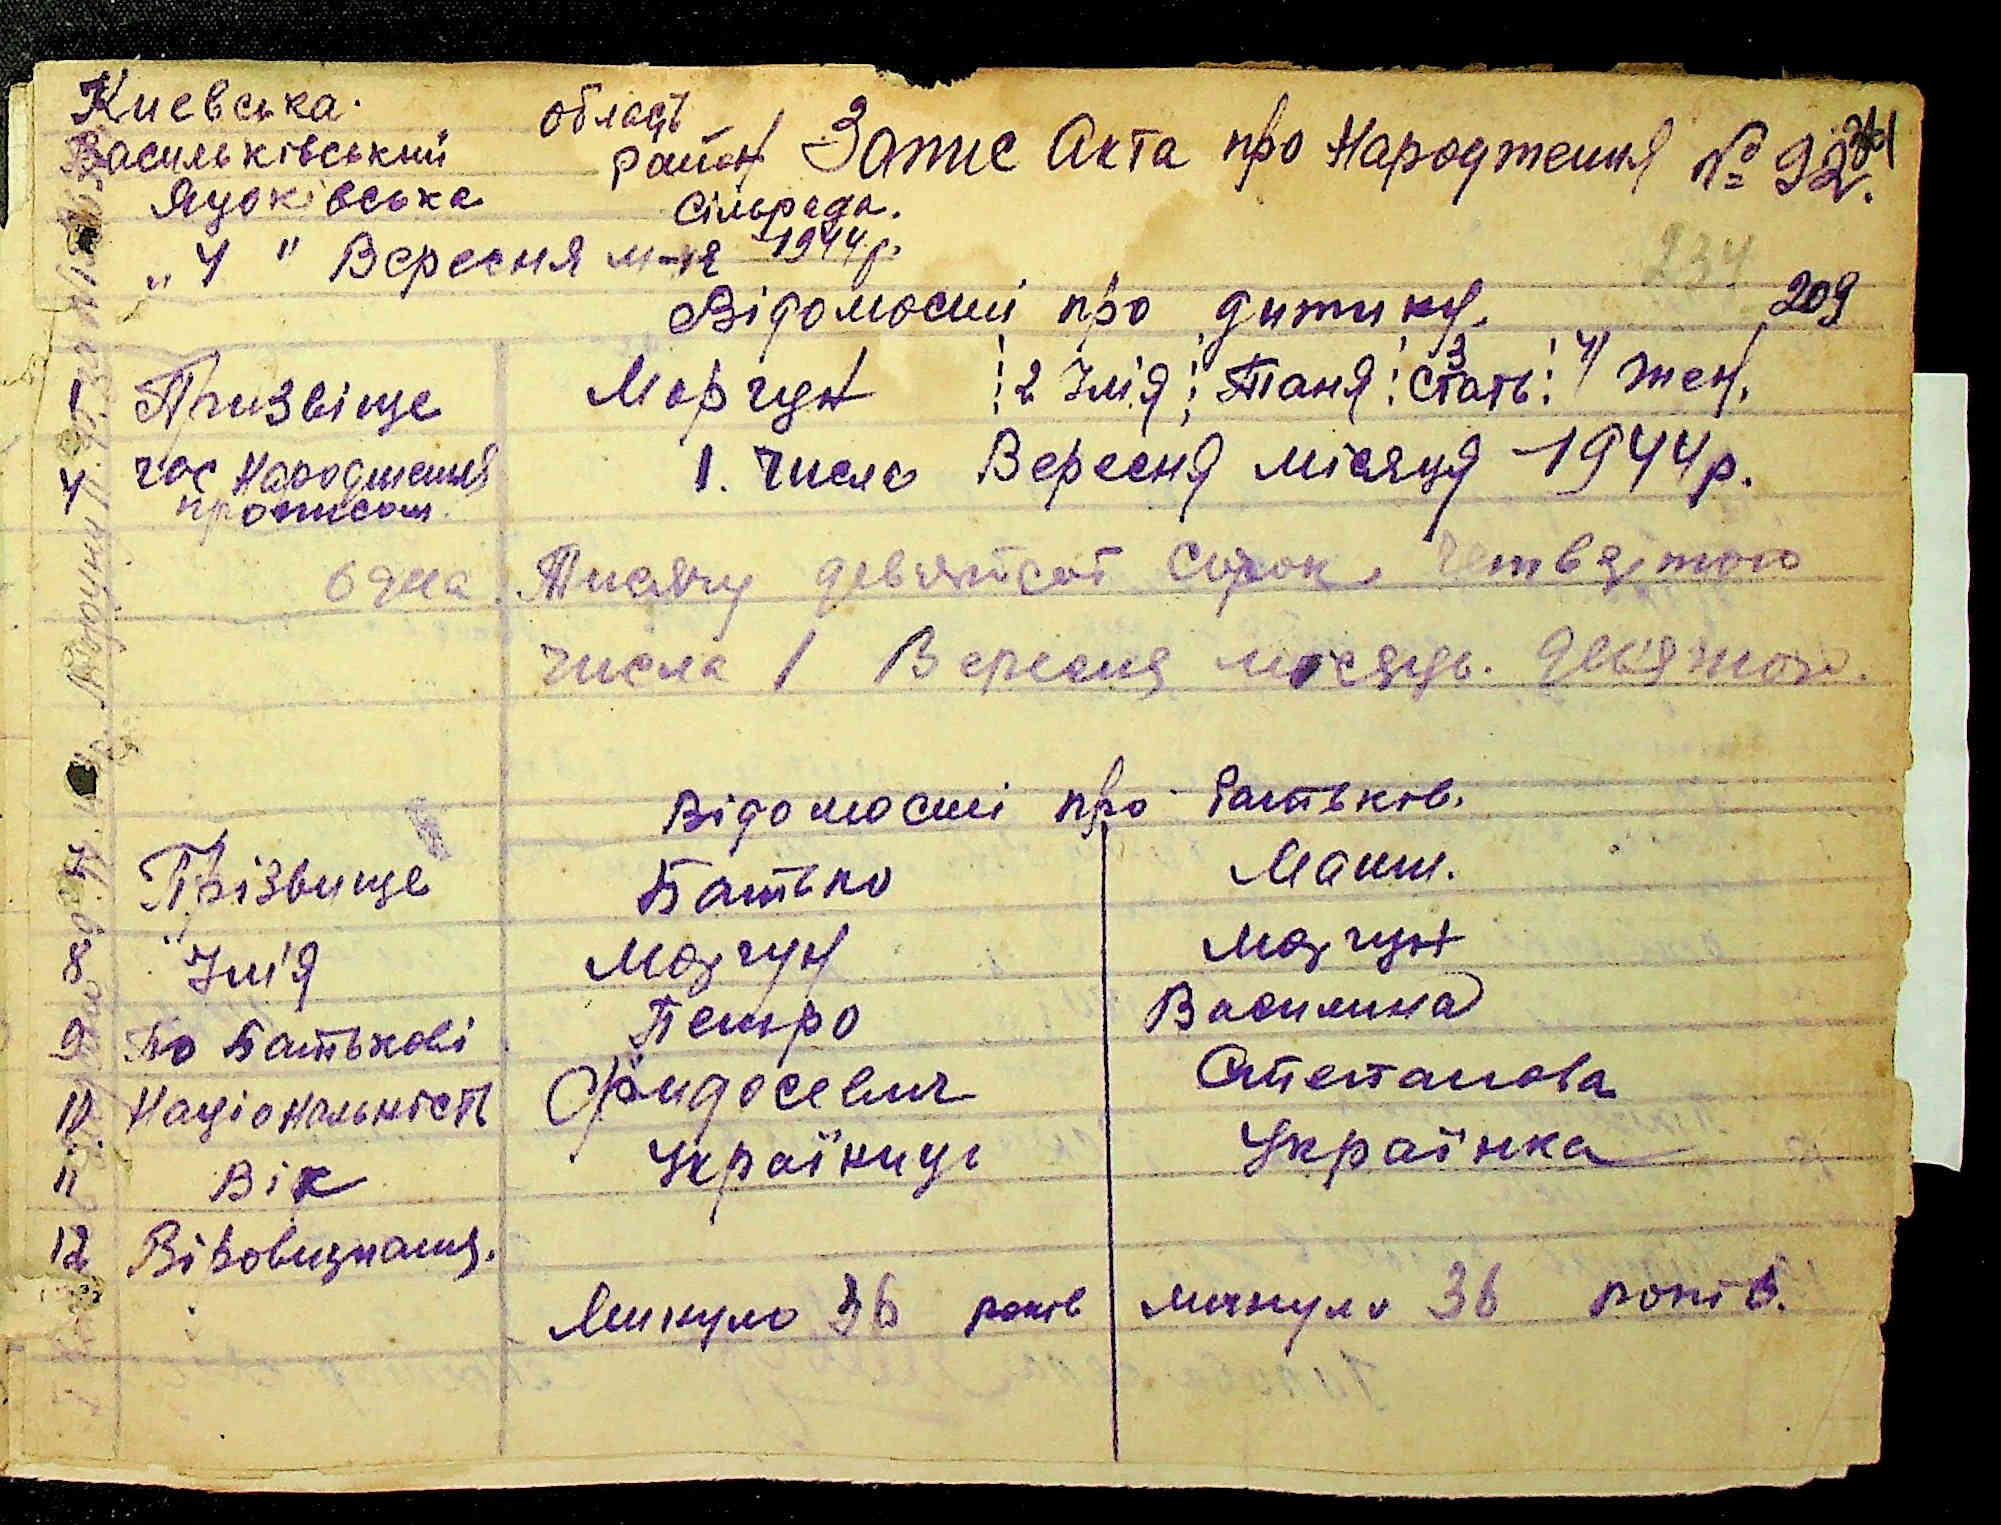 Киевська область
Васильківський район Запис Акта про Народження № 92.
Яцьківська сільрада.
„4" Вересня м-ця 1944р.
234
Відомості про дитину. 209
1 Призвіще Моргун 2 Імія Таня 3 Стать 4 жен.
4 час Народження прописом 1. Число Вересня місяця 1944р.
одна Тисячу девятсот сорок четвертого
числа 1 Вересня місяць. девятого.
Відомості про батьків.
7 Прізвище Батько Мати.
8 Імія Моргун Моргун
9 По Батькові Петро Василина
10 Національність Фидосевич Степанова
11 Вік Україниць Українка
12 Віровизнання.
Минуло 36 років минуло 36 років.